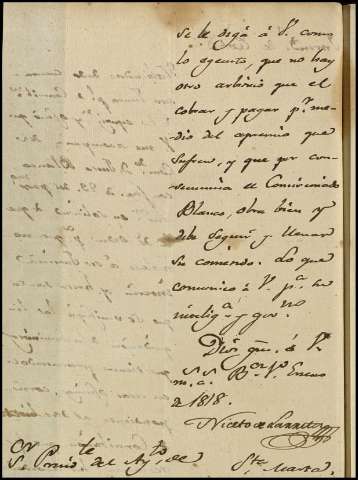 se le diga á V. como
lo egecuto, que no hay
otro arbitrio que el
cobrar y pagar p.r me-
dio del apremio que
sufren, y que por con-
secuencia el Comicionado
Blanco, obra bien y
debe seguir y llenar
su comicion. Lo que
comunico á V. p.a su
intelig.a y gov.no
Dios gue. á V.
m. a. Enero
de 1818.
Niceto de Larreta
S.r Presid.te del Ay.to de S.ta Marta.